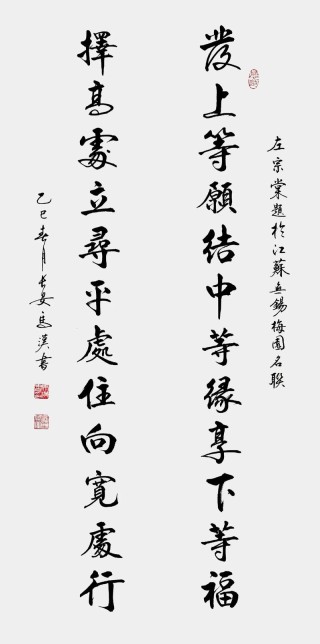 左宗棠題於江蘇無錫梅園名联
發上等願結中等緣享下等福
擇高處立尋平處住向寬處行
乙巳春月長安馬漢書